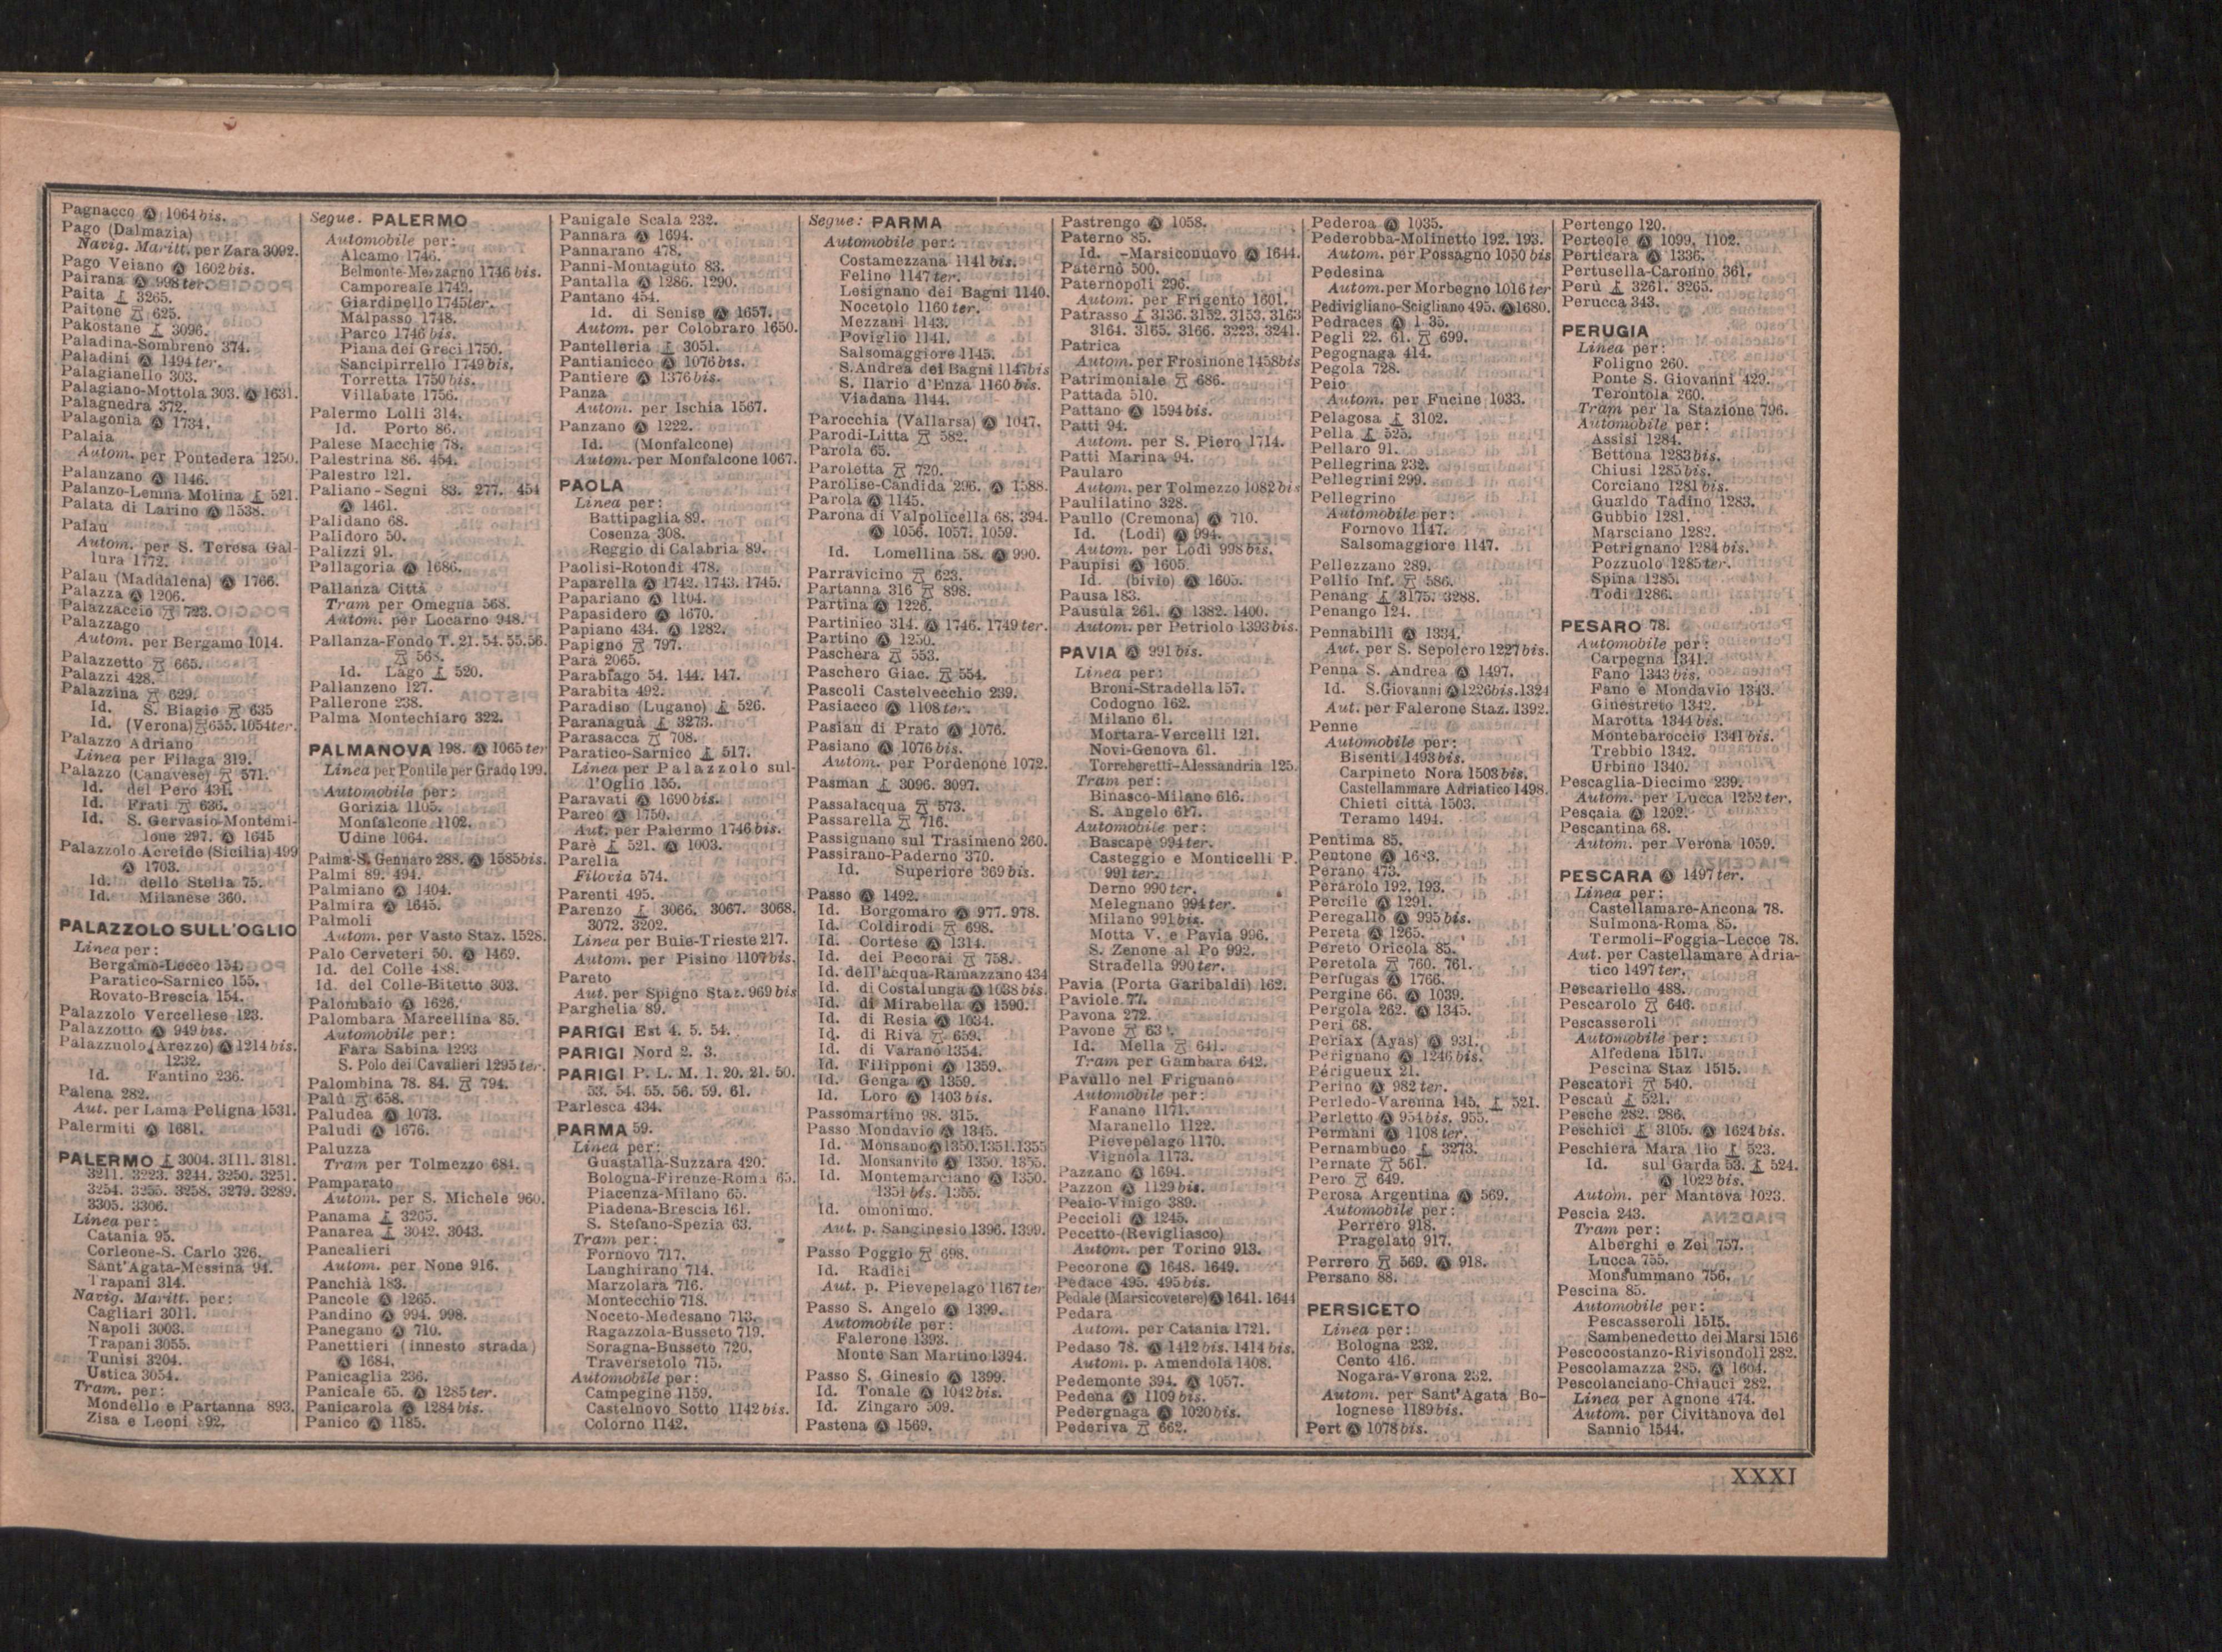 Pagnacco Ⓐ 1064 bis.
Pago (Dalmazia)
Navig. Maritt. per Zara 3092.
Pago Veiano Ⓐ 1602 bis.
Pairana Ⓐ 998 ter.
Paita 3265.
Paitone 625.
Pakostane 3096.
Paladina-Sombreno 374.
Paladini Ⓐ 1494 ter.
Palagianello 303.
Palagiano-Mottola 303. Ⓐ 1631.
Palagnedra 372.
Palagonia Ⓐ 1734.
Palaia
Autom. per Pontedera 1250.
Palanzano Ⓐ 1146.
Palanzo-Lemna Molina 521.
Palata di Larino Ⓐ 1538.
Palau
Autom. per S. Teresa Gal-
lura 1772.
Palau (Maddalena) Ⓐ 1766.
Palazza Ⓐ 1206.
Palazzaccio 723.
Palazzago
Autom. per Bergamo 1014.
Palazzetto 665.
Palazzi 428.
Palazzina 629.
Id. S. Biagio 635
Id. (Verona) 655. 1054 ter.
Palazzo Adriano
Linea per Filaga 319.
Palazzo (Canavese) 571.
Id. del Pero 431.
Id. Frati 636.
Id. S. Gervasio-Montemi-
lone 297. Ⓐ 1645
Palazzolo Acreide (Sicilia) 499
Ⓐ 1703.
Id. dello Stella 75.
Id. Milanese 360.
PALAZZOLO SULL'OGLIO
Linea per:
Bergamo-Lecco 154.
Paratico-Sarnico 155.
Rovato-Brescia 154.
Palazzolo Vercellese 123.
Palazzotto Ⓐ 949 bis.
Palazzuolo (Arezzo) Ⓐ 1214 bis.
1232.
Id. Fantino 236.
Palena 282.
Aut. per Lama Peligna 1531.
Palermiti Ⓐ 1681.
PALERMO 3004. 3111. 3181.
3211. 3223. 3244. 3250. 3251.
3254. 3255. 3258. 3279. 3289.
3305. 3306.
Linea per:
Catania 95.
Corleone-S. Carlo 326.
Sant'Agata-Messina 94.
Trapani 314.
Navig. Maritt. per:
Cagliari 3011.
Napoli 3003.
Trapani 3055.
Tunisi 3204.
Ustica 3054.
Tram. per:
Mondello e Partanna 893.
Zisa e Leoni 892.
Segue. PALERMO
Automobile per:
Alcamo 1746.
Belmonte-Mezzagno 1746 bis.
Camporeale 1749.
Giardinello 1745 ter.
Malpasso 1748.
Parco 1746 bis.
Piana dei Greci 1750.
Sancipirrello 1749 bis.
Torretta 1750 bis.
Villabate 1756.
Palermo Lolli 314.
Id. Porto 86.
Palese Macchie 78.
Palestrina 86. 454.
Palestro 121.
Paliano-Segni 83. 277. 454
Ⓐ 1461.
Palidano 68.
Palidoro 50.
Palizzi 91.
Pallagoria Ⓐ 1686.
Pallanza Città
Tram per Omegna 568.
Autom. per Locarno 948.
Pallanza-Fondo T. 21. 54. 55. 56.
568.
Id. Lago 520.
Pallanzeno 127.
Pallerone 238.
Palma Montechiaro 322.
PALMANOVA 198. Ⓐ 1065 ter
Linea per Pontile per Grado 199.
Automobile per:
Gorizia 1105.
Monfalcone 1102.
Udine 1064.
Palma-S. Gennaro 288. Ⓐ 1585 bis.
Palmi 89. 494.
Palmiano Ⓐ 1404.
Palmira Ⓐ 1645.
Palmoli
Autom. per Vasto Staz. 1528.
Palo Cerveteri 50. Ⓐ 1469.
Id. del Colle 488.
Id. del Colle-Bitetto 303.
Palombaio Ⓐ 1626.
Palombara Marcellina 85.
Automobile per:
Fara Sabina 1293
S. Polo dei Cavalieri 1295 ter.
Palombina 78. 84. 794.
Palù 658.
Paludea Ⓐ 1073.
Paludi Ⓐ 1676.
Paluzza
Tram per Tolmezzo 684.
Pamparato
Autom. per S. Michele 960.
Panama 3265.
Panarea 3042. 3043.
Pancalieri
Autom. per None 916.
Panchià 183.
Pancole Ⓐ 1265.
Pandino Ⓐ 994. 998.
Panegano Ⓐ 710.
Panettieri (innesto strada)
Ⓐ 1684.
Panicaglia 236.
Panicale 65. Ⓐ 1285 ter.
Panicarola Ⓐ 1284 bis.
Panico Ⓐ 1185.
Panigale Scala 232.
Pannara Ⓐ 1694.
Pannarano 478.
Panni-Montaguto 83.
Pantalla Ⓐ 1286. 1290.
Pantano 454.
Id. di Senise Ⓐ 1657.
Autom. per Colobraro 1650.
Pantelleria 3051.
Pantianicco Ⓐ 1076 bis.
Pantiere Ⓐ 1376 bis.
Panza
Autom. per Ischia 1567.
Panzano Ⓐ 1222.
Id. (Monfalcone)
Autom. per Monfalcone 1067.
PAOLA
Linea per:
Battipaglia 89.
Cosenza 308.
Reggio di Calabria 89.
Paolisi-Rotondi 478.
Paparella Ⓐ 1742. 1743. 1745.
Papariano Ⓐ 1104.
Papasidero Ⓐ 1670.
Papiano 434. Ⓐ 1282.
Papigno 797.
Parà 2065.
Parabiago 54. 144. 147.
Parabita 492.
Paradiso (Lugano) 526.
Paranaguà 3273.
Parasacca 708.
Paratico-Sarnico 517.
Linea per Palazzolo sul-
l'Oglio 155.
Paravati Ⓐ 1690 bis.
Parco Ⓐ 1750.
Aut. per Palermo 1746 bis.
Parè 521. Ⓐ 1003.
Parella
Filovia 574.
Parenti 495.
Parenzo 3066. 3067. 3068.
3072. 3202.
Linea per Buie-Trieste 217.
Autom. per Pisino 1107 bis.
Pareto
Aut. per Spigno Staz. 969 bis
Parghelia 89.
PARIGI Est 4. 5. 54.
PARIGI Nord 2. 3.
PARIGI P. L. M. 1. 20. 21. 50.
53. 54. 55. 56. 59. 61.
Parlesca 434.
PARMA 59.
Linea per:
Guastalla-Suzzara 420.
Bologna-Firenze-Roma 65.
Piacenza-Milano 65.
Piadena-Brescia 161.
S. Stefano-Spezia 63.
Tram per:
Fornovo 717.
Langhirano 714.
Marzolara 716.
Montecchio 718.
Noceto-Medesano 713.
Ragazzola-Busseto 719.
Soragna-Busseto 720.
Traversetolo 715.
Automobile per:
Campegine 1159.
Castelnovo Sotto 1142 bis.
Colorno 1142.
Segue: PARMA
Automobile per:
Costamezzana 1141 bis.
Felino 1147 ter.
Lesignano dei Bagni 1140.
Nocetolo 1160 ter.
Mezzani 1143.
Poviglio 1141.
Salsomaggiore 1145.
S. Andrea dei Bagni 1147 bis
S. Ilario d'Enza 1160 bis.
Viadana 1144.
Parocchia (Vallarsa) Ⓐ 1047.
Parodi-Litta 582.
Parola 65.
Paroletta 720.
Parolise-Candida 296. Ⓐ 1588.
Parola Ⓐ 1145.
Parona di Valpolicella 68. 394.
Ⓐ 1056. 1057. 1059.
Id. Lomellina 58. Ⓐ 990.
Parravicino 623.
Partanna 316 898.
Partina Ⓐ 1226.
Partinico 314. Ⓐ 1746. 1749 ter.
Partino Ⓐ 1250.
Paschera 553.
Paschero Giac. 554.
Pascoli Castelvecchio 239.
Pasiacco Ⓐ 1108 ter.
Pasian di Prato Ⓐ 1076.
Pasiano Ⓐ 1076 bis.
Autom. per Pordenone 1072.
Pasman 3096. 3097.
Passalacqua 573.
Passarella 716.
Passignano sul Trasimeno 260.
Passirano-Paderno 370.
Id. Superiore 369 bis.
Passo Ⓐ 1492.
Id. Borgomaro Ⓐ 977. 978.
Id. Coldirodi 698.
Id. Cortese Ⓐ 1314.
Id. dei Pecorai 758.
Id. dell'acqua-Ramazzano 434
Id. di Costalunga Ⓐ 1038 bis.
Id. di Mirabella Ⓐ 1590.
Id. di Resia Ⓐ 1034.
Id. di Riva 659.
Id. di Varano 1354.
Id. Filipponi Ⓐ 1359.
Id. Genga Ⓐ 1359.
Id. Loro Ⓐ 1403 bis.
Passomartino 98. 315.
Passo Mondavio Ⓐ 1345.
Id. Monsano Ⓐ 1350. 1351. 1355
Id. Monsanvito Ⓐ 1350. 1355.
Id. Montemarciano Ⓐ 1350.
1351 bis. 1355.
Id. omonimo.
Aut. p. Sanginesio 1396. 1399.
Passo Poggio 698.
Id. Radici
Aut. p. Pievepelago 1167 ter
Passo S. Angelo Ⓐ 1399.
Automobile per:
Falerone 1393.
Monte San Martino 1394.
Passo S. Ginesio Ⓐ 1399.
Id. Tonale Ⓐ 1042 bis.
Id. Zingaro 509.
Pastena Ⓐ 1569.
Pastrengo Ⓐ 1058.
Paterno 85.
Id. -Marsiconuovo Ⓐ 1644.
Paternò 500.
Paternopoli 296.
Autom. per Frigento 1601.
Patrasso 3136. 3152. 3153. 3163
3164. 3165. 3166. 3223. 3241.
Patrica
Autom. per Frosinone 1458 bis
Patrimoniale 686.
Pattada 510.
Pattano Ⓐ 1594 bis.
Patti 94.
Autom. per S. Piero 1714.
Patti Marina 94.
Paularo
Autom. per Tolmezzo 1082 bis
Paulilatino 328.
Paullo (Cremona) Ⓐ 710.
Id. (Lodi) Ⓐ 994.
Autom. per Lodi 998 bis.
Paupisi Ⓐ 1605.
Id. (bivio) Ⓐ 1605.
Pausa 183.
Pausula 261. Ⓐ 1382. 1400.
Autom. per Petriolo 1393 bis.
PAVIA Ⓐ 991 bis.
Linea per:
Broni-Stradella 157.
Codogno 162.
Milano 61.
Mortara-Vercelli 121.
Novi-Genova 61.
Torreberetti-Alessandria 125.
Tram per:
Binasco-Milano 616.
S. Angelo 617.
Automobile per:
Bascapè 994 ter.
Casteggio e Monticelli P.
991 ter.
Derno 990 ter.
Melegnano 994 ter.
Milano 991 bis.
Motta V. e Pavia 996.
S. Zenone al Po 992.
Stradella 990 ter.
Pavia (Porta Garibaldi) 162.
Paviole 77.
Pavona 272.
Pavone
Id. Mella 641.
Tram per Gambara 642.
Pavullo nel Frignano
Automobile per:
Fanano 1171.
Maranello 1122.
Pievepelago 1170.
Vignola 1173.
Pazzano Ⓐ 1694.
Pazzon Ⓐ 1129 bis.
Peaio-Vinigo 389.
Peccioli Ⓐ 1245.
Pecetto-(Revigliasco)
Autom. per Torino 913.
Pecorone Ⓐ 1648. 1649.
Pedace 495. 495 bis.
Pedale (Marsicovetere) Ⓐ 1641. 1644
Pedara
Autom. per Catania 1721.
Pedaso 78. Ⓐ 1412 bis. 1414 bis.
Autom. p. Amendola 1408.
Pedemonte 394. Ⓐ 1057.
Pedena Ⓐ 1109 bis.
Pedergnaga Ⓐ 1020 bis.
Pederiva 662.
Pederoa Ⓐ 1035.
Pederobba-Molinetto 192. 193.
Autom. per Possagno 1050 bis
Pedesina
Autom. per Morbegno 1016 ter
Pedivigliano-Scigliano 495. Ⓐ 1680.
Pedraces Ⓐ
Pegli 22. 61. 699.
Pegognaga 414.
Pegola 728.
Peio
Autom. per Fucine 1033.
Pelagosa 3102.
Pella 525.
Pellaro 91.
Pellegrina 232.
Pellegrini 299.
Pellegrino
Automobile per:
Fornovo 1147.
Salsomaggiore 1147.
Pellezzano 289.
Pellio Inf. 586.
Penang 3175. 3288.
Penango 124.
Pennabilli Ⓐ 1334.
Aut. per S. Sepolcro 1227 bis.
Penna S. Andrea Ⓐ 1497.
Id. S. Giovanni Ⓐ 1226 bis. 1324
Aut. per Falerone Staz. 1392.
Penne
Automobile per:
Bisenti 1493 bis.
Carpineto Nora 1503 bis.
Castellammare Adriatico 1498.
Chieti città 1503.
Teramo 1494.
Pentima 85.
Pentone Ⓐ
Perano 473.
Perarolo 192. 193.
Percile Ⓐ 1291.
Peregallo Ⓐ 995 bis.
Pereta Ⓐ 1265.
Pereto Oricola 85.
Peretola 760. 761.
Perfugas Ⓐ 1766.
Pergine 66. Ⓐ 1039.
Pergola 262. Ⓐ 1345.
Peri 68.
Periax (Ayas) Ⓐ 931.
Perignano Ⓐ 1246 bis.
Périgueux 21.
Perino Ⓐ 982 ter.
Perledo-Varenna 145. 521.
Perletto Ⓐ 954 bis. 955.
Permani Ⓐ 1108 ter.
Pernambuco 3273.
Pernate 561.
Pero 649.
Perosa Argentina Ⓐ 569.
Automobile per:
Perrero 918.
Pragelato 917.
Perrero 569. Ⓐ 918.
Persano 88.
PERSICETO
Linea per:
Bologna 232.
Cento 416.
Nogara-Verona 232.
Autom. per Sant'Agata Bo-
lognese 1189 bis.
Pert Ⓐ 1078 bis.
Pertengo 120.
Perteole Ⓐ 1099. 1102.
Perticara Ⓐ 1336.
Pertusella-Caronno 361.
Perù 3261. 3265.
Perucca 343.
PERUGIA
Linea per:
Foligno 260.
Ponte S. Giovanni 429.
Terontola 260.
Tram per la Stazione 796.
Automobile per:
Assisi 1284.
Bettona 1283 bis.
Chiusi 1285 bis.
Corciano 1281 bis.
Gualdo Tadino 1283.
Gubbio 1281.
Marsciano 1282.
Petrignano 1284 bis.
Pozzuolo 1285 ter.
Spina 1285.
Todi 1286.
PESARO 78.
Automobile per:
Carpegna 1341.
Fano 1343 bis.
Fano e Mondavio 1343.
Ginestreto 1342.
Marotta 1344 bis.
Montebaroccio 1341 bis.
Trebbio 1342.
Urbino 1340.
Pescaglia-Diecimo 239.
Autom. per Lucca 1252 ter.
Pesçaia Ⓐ 1202.
Pescantina 68.
Autom. per Verona 1059.
PESCARA Ⓐ 1497 ter.
Linea per:
Castellamare-Ancona 78.
Sulmona-Roma 85.
Termoli-Foggia-Lecce 78.
Aut. per Castellamare Adria-
tico 1497 ter.
Pescariello 488.
Pescarolo 646.
Pescasseroli
Automobile per:
Alfedena 1517.
Pescina Staz 1515.
Pescatori 540.
Pescaù 521.
Pesche 282. 286.
Peschici 3105. Ⓐ 1624 bis.
Peschiera Mara lio 523.
Id. sul Garda 53. 524.
Ⓐ 1022 bis.
Autom. per Mantova 1023.
Pescia 243.
Tram per:
Alberghi e Zei 757.
Lucca 755.
Monsummano 756.
Pescina 85.
Automobile per:
Pescasseroli 1515.
Sambenedetto dei Marsi 1516
Pescocostanzo-Rivisondoli 282.
Pescolamazza 285. Ⓐ 1604.
Pescolanciano-Chiauci 282.
Linea per Agnone 474.
Autom. per Civitanova del
Sannio 1544.
XXXI